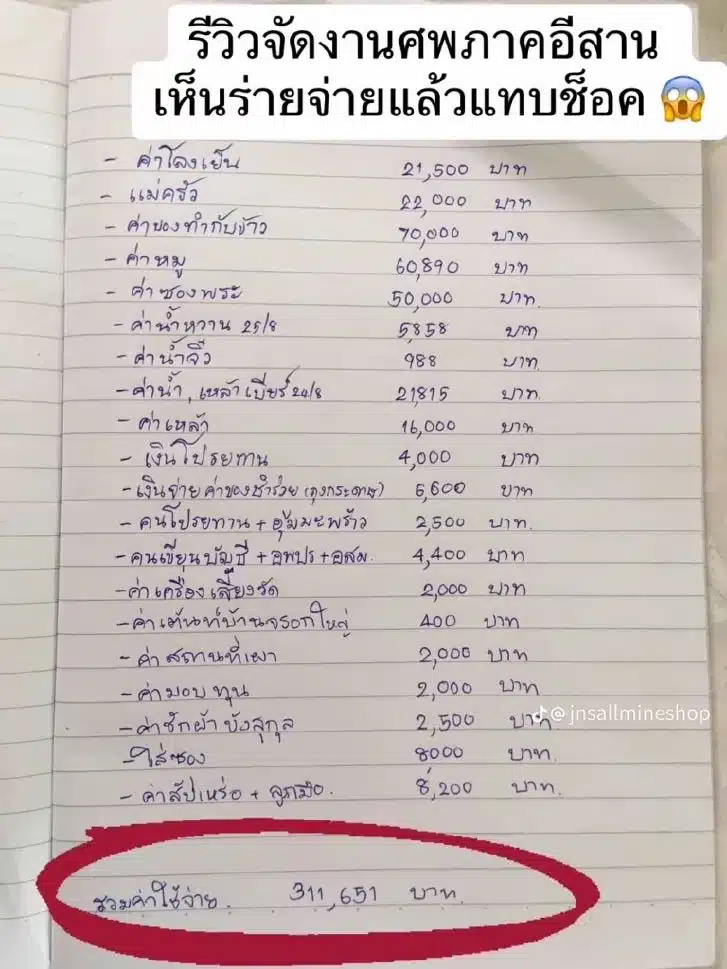 รีวิวจัดงานศพภาคอีสาน
เห็นร่ายจ่ายแล้วแทบช็อค 😱
- ค่าโลงเย็น 21,500 บาท
- แม่ครัว 22,000 บาท
- ค่าของทำกับข้าว 70,000 บาท
- ค่าหมู 60,890 บาท
- ค่าซองพระ 50,000 บาท.
- ค่าน้ำหวาน 25/8 5,858 บาท
- ค่าน้ำจิ้ว 988 บาท.
- ค่าน้ำ, เหล้าเบียร์ 24/8 21,815 บาท.
- ค่าเหล้า 16,000 บาท
- เงินโปรยทาน 4,000 บาท
- เงินจ่ายค่าของชำร่วย (ถุงกระดาษ) 6,600 บาท
- คนโปรยทาน + อุ้มมะพร้าว 2,500 บาท.
- คนเขียนบัญชี + อพปร + อสม. 4,400 บาท
- ค่าเครื่องเสียงวัด 2,000 บาท
- ค่าเต้นท์บ้านจรอกใหญ่ 400 บาท
- ค่าสถานที่เผา 2,000 บาท
- ค่ามอบทุน 2,000 บาท
- ค่าชักผ้าบังสุกุล 2,500 บาท
@jnsallmineshop
- ใส่ซอง 8000 บาท.
- ค่าสัปเหร่อ + ลูกมือ. 8,200 บาท.
รวมค่าใช้จ่าย. 311,651 บาท.